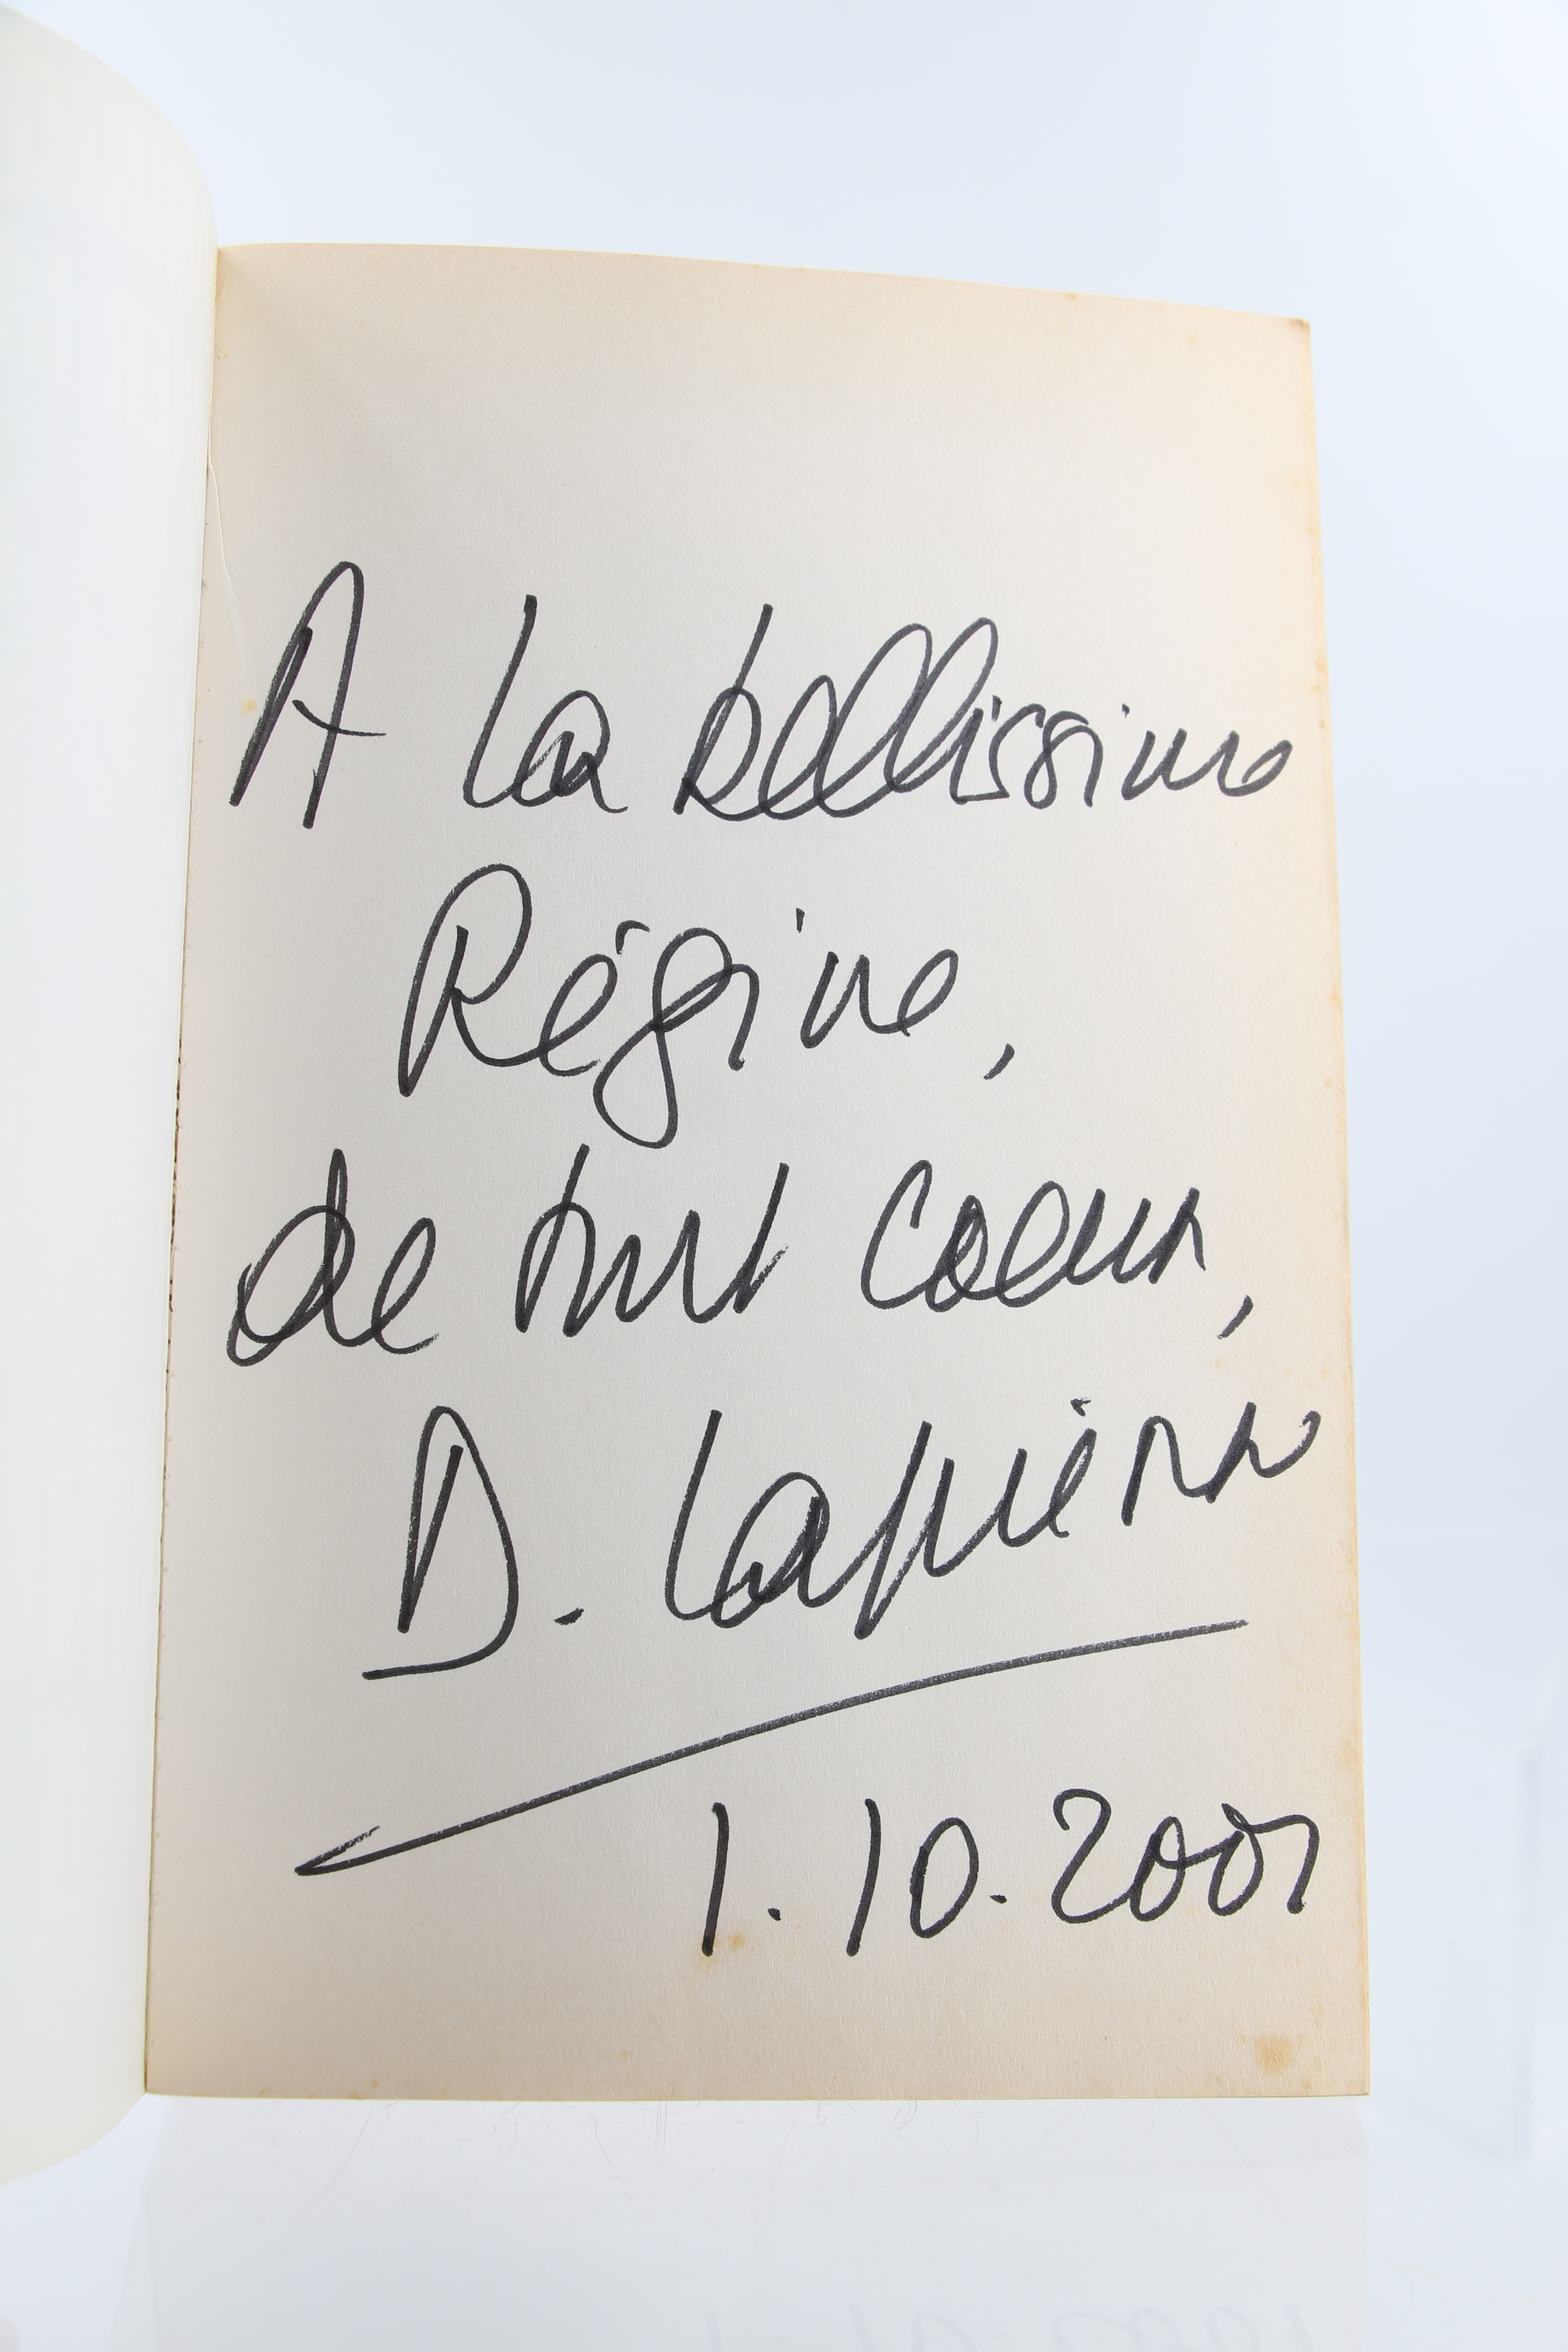 A la bellissime
Régine,
de tout coeur,
D. Lapierre
1.10.2001